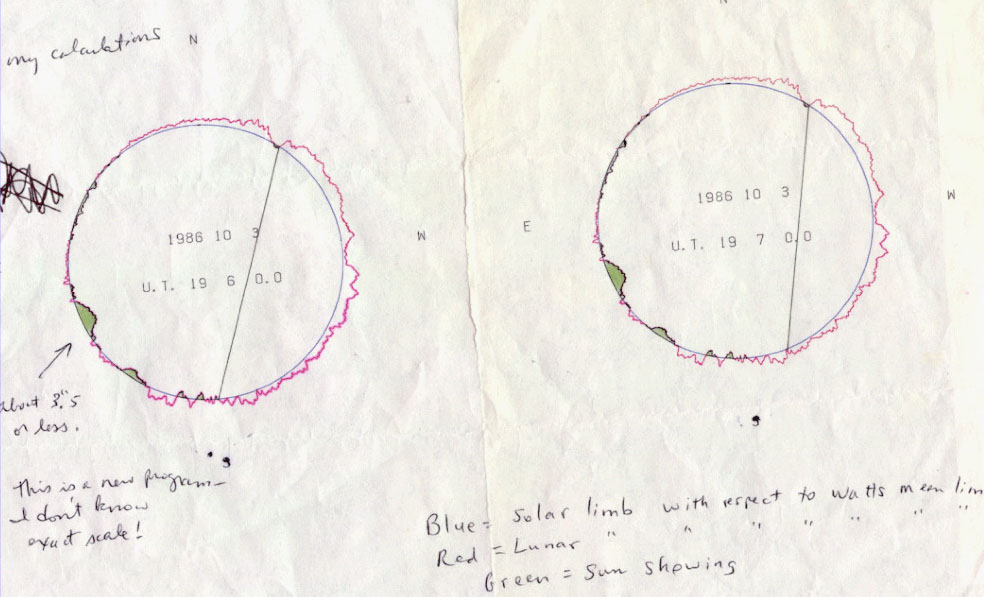 my calculations
N
1986 10 3
U.T. 19 6 0.0
W
about 3."5
or less.
This is a new program—
I don't know
exact scale!
N
E
1986 10 3
U.T. 19 7 0.0
W
Blue = Solar limb with respect to Watts mean lim
Red = Lunar " " " " " " "
Green = Sun showing